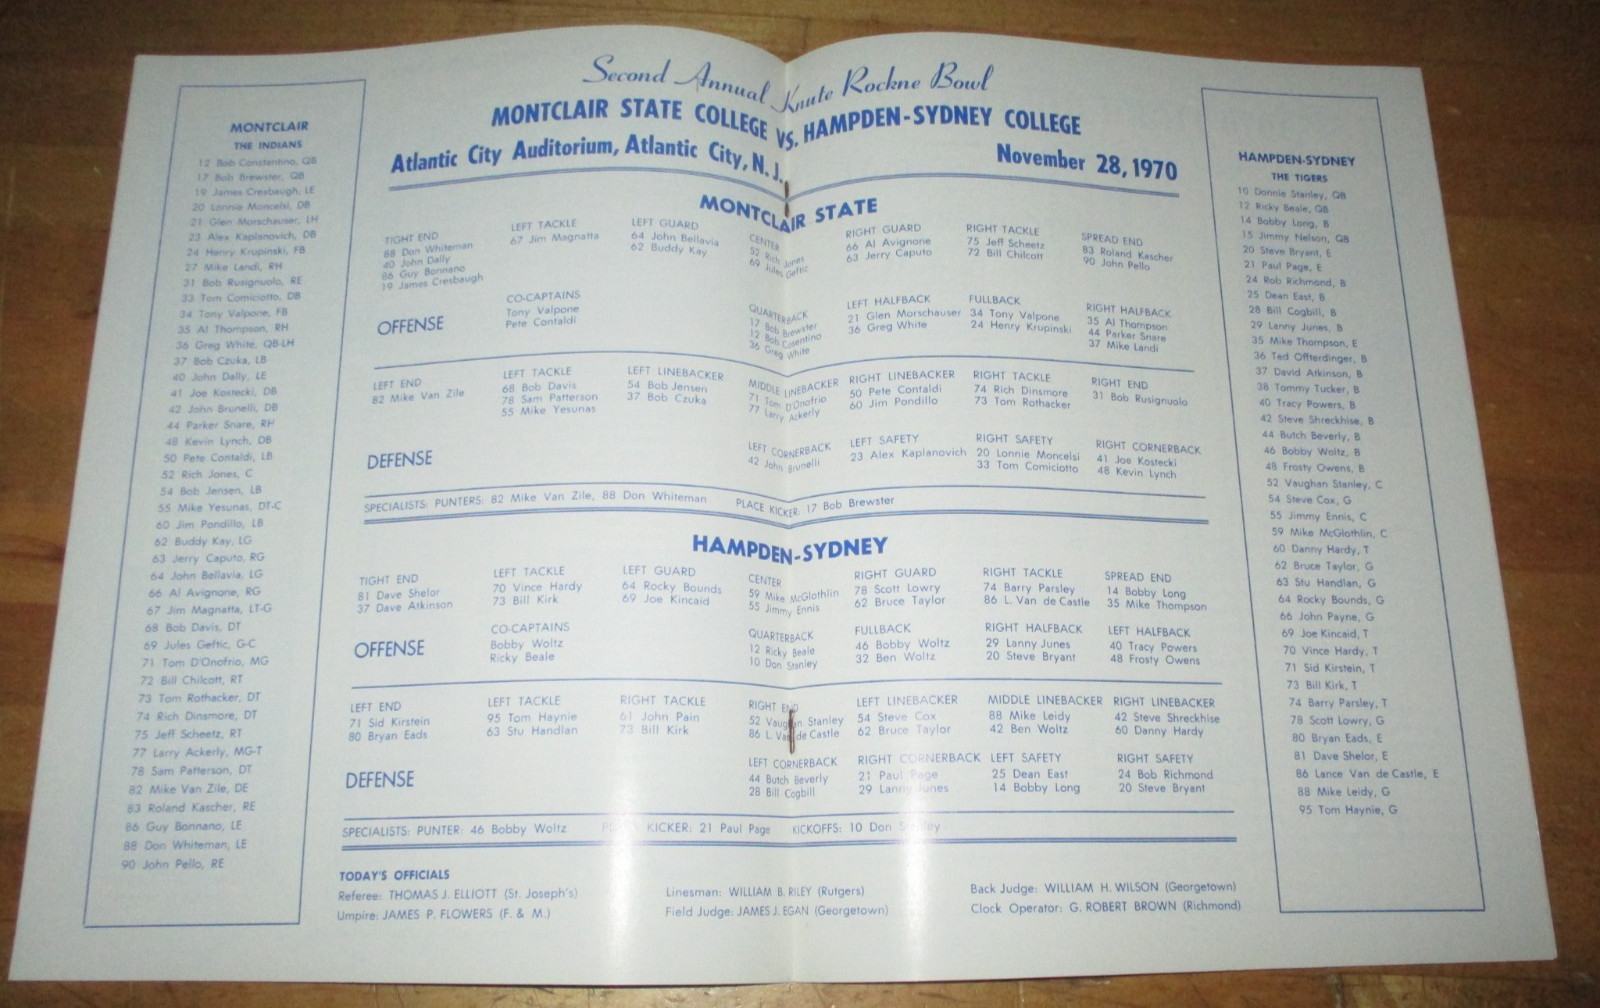 Second Annual Knute Rockne Bowl
MONTCLAIR STATE COLLEGE VS. HAMPDEN-SYDNEY COLLEGE
Atlantic City Auditorium, Atlantic City, N. J. November 28, 1970
MONTCLAIR
THE INDIANS
12 Bob Constentino, QB
17 Bob Brewster, QB
19 James Cresbaugh, LE
20 Lonnie Moncelsi, DB
21 Glen Morschauser, LH
23 Alex Kaplanovich, DB
24 Henry Krupinski, FB
27 Mike Landi, RH
31 Bob Rusignuolo, RE
33 Tom Comiciotto, DB
34 Tony Valpone, FB
35 Al Thompson, RH
36 Greg White, QB-LH
37 Bob Czuka, LB
40 John Dally, LE
41 Joe Kostecki, DB
42 John Brunelli, DB
44 Parker Snare, RH
48 Kevin Lynch, DB
50 Pete Contaldi, LB
52 Rich Jones, C
54 Bob Jensen, LB
55 Mike Yesunas, DT-C
60 Jim Pondillo, LB
62 Buddy Kay, LG
63 Jerry Caputo, RG
64 John Bellavia, LG
66 Al Avignone, RG
67 Jim Magnatta, LT-G
68 Bob Davis, DT
69 Jules Geftic, G-C
71 Tom D'Onofrio, MG
72 Bill Chilcott, RT
73 Tom Rothacker, DT
74 Rich Dinsmore, DT
75 Jeff Scheetz, RT
77 Larry Ackerly, MG-T
78 Sam Patterson, DT
82 Mike Van Zile, DE
83 Roland Kascher, RE
86 Guy Bonnano, LE
88 Don Whiteman, LE
90 John Pello, RE
MONTCLAIR STATE
TIGHT END
88 Don Whiteman
40 John Dally
86 Guy Bonnano
19 James Cresbaugh
LEFT TACKLE
67 Jim Magnatta
LEFT GUARD
64 John Bellavia
62 Buddy Kay
CENTER
52 Rich Jones
69 Jules Geftic
RIGHT GUARD
66 Al Avignone
63 Jerry Caputo
RIGHT TACKLE
75 Jeff Scheetz
72 Bill Chilcott
SPREAD END
83 Roland Kascher
90 John Pello
OFFENSE
CO-CAPTAINS
Tony Valpone
Pete Contaldi
QUARTERBACK
17 Bob Brewster
12 Bob Cosentino
36 Greg White
LEFT HALFBACK
21 Glen Morschauser
36 Greg White
FULLBACK
34 Tony Valpone
24 Henry Krupinski
RIGHT HALFBACK
35 Al Thompson
44 Parker Snare
37 Mike Landi
LEFT END
82 Mike Van Zile
LEFT TACKLE
68 Bob Davis
78 Sam Patterson
55 Mike Yesunas
LEFT LINEBACKER
54 Bob Jensen
37 Bob Czuka
MIDDLE LINEBACKER
71 Tom D'Onofrio
77 Larry Ackerly
RIGHT LINEBACKER
50 Pete Contaldi
60 Jim Pondillo
RIGHT TACKLE
74 Rich Dinsmore
73 Tom Rothacker
RIGHT END
31 Bob Rusignuolo
DEFENSE
LEFT CORNERBACK
42 John Brunelli
LEFT SAFETY
23 Alex Kaplanovich
RIGHT SAFETY
20 Lonnie Moncelsi
33 Tom Comiciotto
RIGHT CORNERBACK
41 Joe Kostecki
48 Kevin Lynch
SPECIALISTS: PUNTERS: 82 Mike Van Zile, 88 Don Whiteman PLACE KICKER: 17 Bob Brewster
HAMPDEN-SYDNEY
TIGHT END
81 Dave Shelor
37 Dave Atkinson
LEFT TACKLE
70 Vince Hardy
73 Bill Kirk
LEFT GUARD
64 Rocky Bounds
69 Joe Kincaid
CENTER
59 Mike McGlothlin
55 Jimmy Ennis
RIGHT GUARD
78 Scott Lowry
62 Bruce Taylor
RIGHT TACKLE
74 Barry Parsley
86 L. Van de Castle
SPREAD END
14 Bobby Long
35 Mike Thompson
OFFENSE
CO-CAPTAINS
Bobby Woltz
Ricky Beale
QUARTERBACK
12 Ricky Beale
10 Don Stanley
FULLBACK
46 Bobby Woltz
32 Ben Woltz
RIGHT HALFBACK
29 Lanny Junes
20 Steve Bryant
LEFT HALFBACK
40 Tracy Powers
48 Frosty Owens
LEFT END
71 Sid Kirstein
80 Bryan Eads
LEFT TACKLE
95 Tom Haynie
63 Stu Handlan
RIGHT TACKLE
61 John Pain
73 Bill Kirk
RIGHT END
52 Vaughan Stanley
86 L. Van de Castle
LEFT LINEBACKER
54 Steve Cox
62 Bruce Taylor
MIDDLE LINEBACKER
88 Mike Leidy
42 Ben Woltz
RIGHT LINEBACKER
42 Steve Shreckhise
60 Danny Hardy
DEFENSE
LEFT CORNERBACK
44 Butch Beverly
28 Bill Cogbill
RIGHT CORNERBACK
21 Paul Page
29 Lanny Junes
LEFT SAFETY
25 Dean East
14 Bobby Long
RIGHT SAFETY
24 Bob Richmond
20 Steve Bryant
SPECIALISTS: PUNTER: 46 Bobby Woltz PLACE KICKER: 21 Paul Page KICKOFFS: 10 Don Stanley
TODAY'S OFFICIALS
Referee: THOMAS J. ELLIOTT (St. Joseph's)
Umpire: JAMES P. FLOWERS (F. & M.)
Linesman: WILLIAM B. RILEY (Rutgers)
Field Judge: JAMES J. EGAN (Georgetown)
Back Judge: WILLIAM H. WILSON (Georgetown)
Clock Operator: G. ROBERT BROWN (Richmond)
HAMPDEN-SYDNEY
THE TIGERS
10 Donnie Stanley, QB
12 Ricky Beale, QB
14 Bobby Long, B
15 Jimmy Nelson, QB
20 Steve Bryant, E
21 Paul Page, E
24 Rob Richmond, B
25 Dean East, B
28 Bill Cogbill, B
29 Lanny Junes, B
35 Mike Thompson, E
36 Ted Offterdinger, B
37 David Atkinson, B
38 Tommy Tucker, B
40 Tracy Powers, B
42 Steve Shreckhise, B
44 Butch Beverly, B
46 Bobby Woltz, B
48 Frosty Owens, B
52 Vaughan Stanley, C
54 Steve Cox, G
55 Jimmy Ennis, C
59 Mike McGlothlin, C
60 Danny Hardy, T
62 Bruce Taylor, G
63 Stu Handlan, G
64 Rocky Bounds, G
66 John Payne, G
69 Joe Kincaid, T
70 Vince Hardy, T
71 Sid Kirstein, T
73 Bill Kirk, T
74 Barry Parsley, T
78 Scott Lowry, G
80 Bryan Eads, E
81 Dave Shelor, E
86 Lance Van de Castle, E
88 Mike Leidy, G
95 Tom Haynie, G